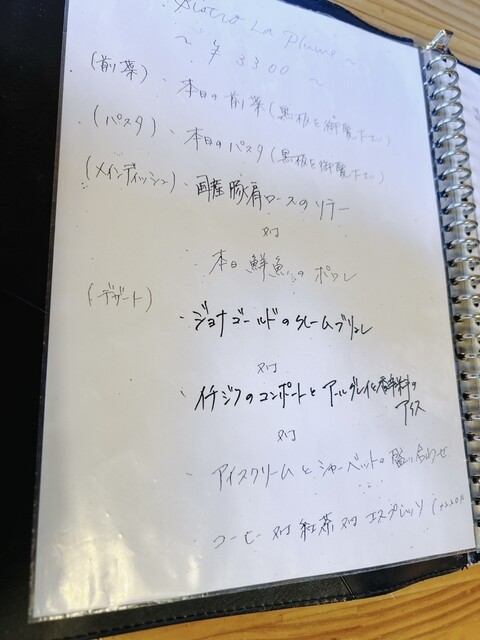 Bistro La Plume ~
~ ¥ 3300 ~
(前菜) ・本日の前菜(黒板を御覧下さい)
(パスタ) ・本日のパスタ(黒板を御覧下さい)
(メインディッシュ) ・国産豚肩ロースのソテー
又は
本日鮮魚のポワレ
(デザート)
・ジョナゴールドのクレームブリュレ
又は
・イチジクのコンポートと アールグレイと香辛料の
アイス
又は
・アイスクリームとシャーベットの盛り合わせ
・コーヒー 又は 紅茶 又は エスプレッソ